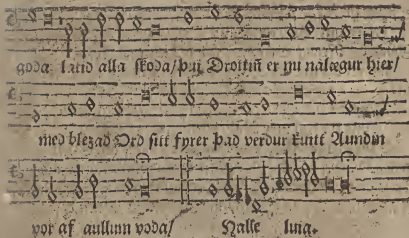 goda land alla skoda/ þui Drottiñ er nu nalægur hier/
med blezad Ord sitt fyrer þad verdur kuntt Aundin
vor af aullum voda/ Halle luia.